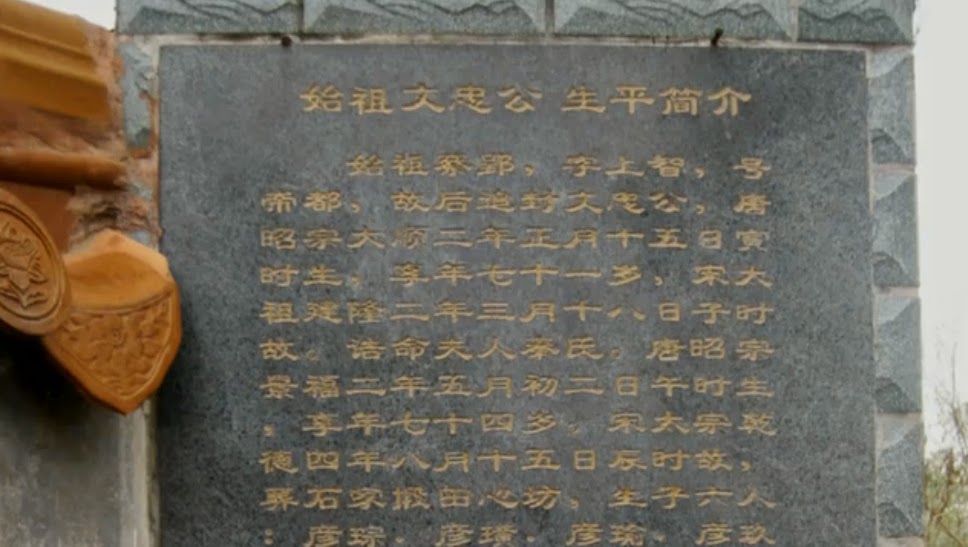 始祖文忠公 生平简介
始祖蔡郢，字上智，号
帝都，故后追封文忠公，唐
昭宗大顺二年正月十五日寅
时生，享年七十一岁，宋太
祖建隆二年三月十八日子时
故。诰命夫人秦氏。唐昭宗
景福二年五月初二日午时生
，享年七十四岁。宋太宗乾
德四年八月十五日辰时故，
葬石家搬田心坊，生子六人
：彦琮．彦璜．彦瑜．彦玖